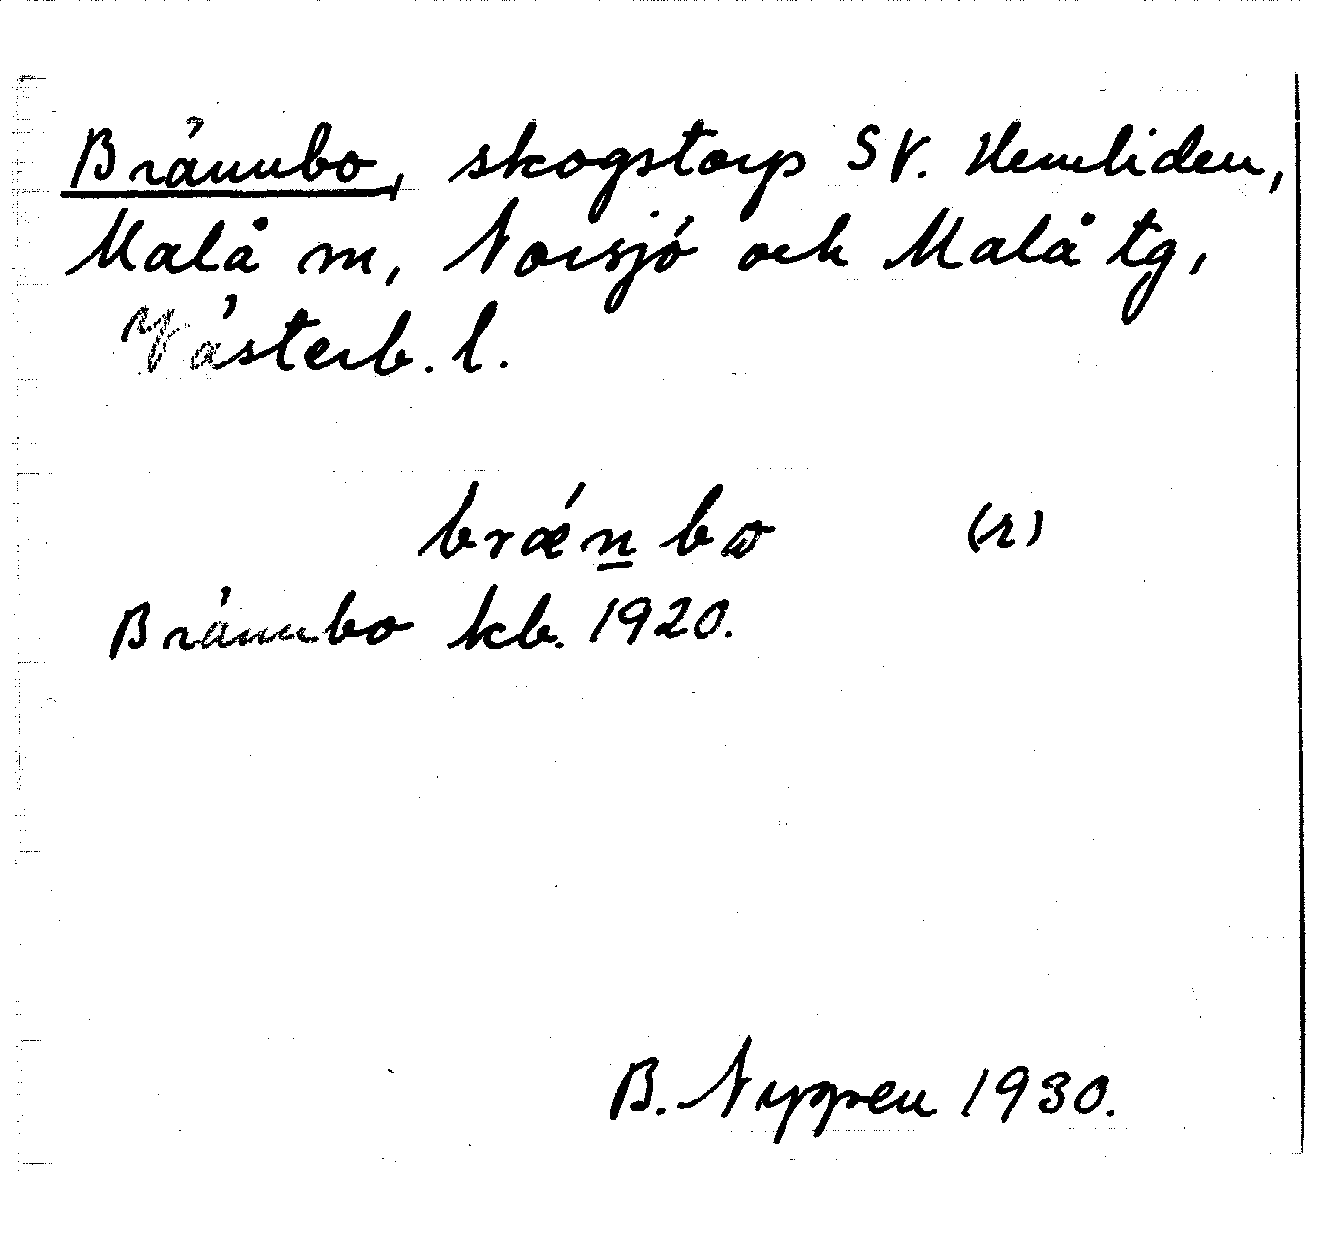 Brännbo, skogstorp SV. Hemliden,
Malå m, Norsjö och Malå tg,
Västerb. l.
brǽn̲bo (r)
Brännbo kb. 1920.
B. Nyppen 1930.